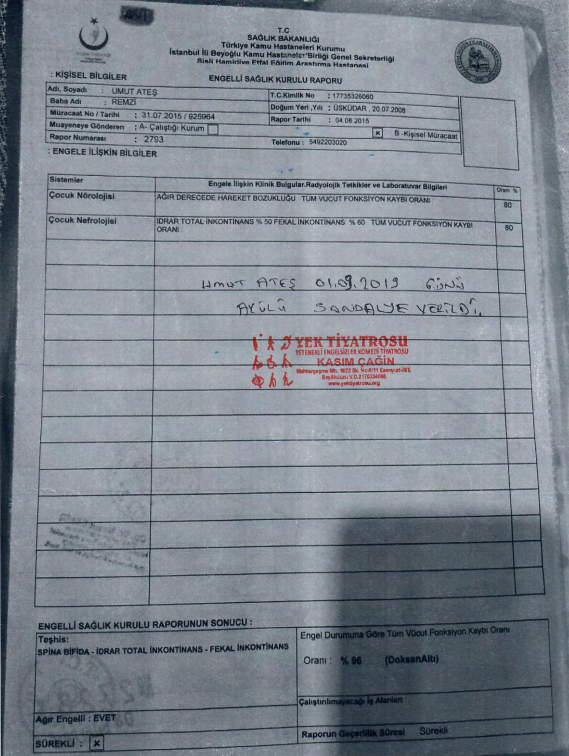 T.C
SAĞLIK BAKANLIĞI
Türkiye Kamu Hastaneleri Kurumu
İstanbul İli Beyoğlu Kamu Hastaneler Birliği Genel Sekreterliği
Şişli Hamidiye Etfal Eğitim Araştırma Hastanesi
: KİŞİSEL BİLGİLER
ENGELLİ SAĞLIK KURULU RAPORU
Adı, Soyadı : UMUT ATEŞ
T.C.Kimlik No : 17735326060
Baba Adi : REMZİ
Doğum Yeri ,Yılı : ÜSKÜDAR , 20.07.2008
Müracaat No / Tarihi : 31.07.2015 / 925964
Rapor Tarihi : 04.08.2015
Muayeneye Gönderen : A- Çalıştığı Kurum
x B -Kişisel Müracaat
Rapor Numarası : 2793
Telefonu : 5492203020
: ENGELE İLİŞKİN BİLGİLER
Sistemler
Engele İlişkin Klinik Bulgular.Radyolojik Tetkikler ve Laboratuvar Bilgileri
Oranı %
Çocuk Nörolojisi
AĞIR DERECEDE HAREKET BOZUKLUĞU TÜM VÜCUT FONKSİYON KAYBI ORANI
80
Çocuk Nefrolojisi
İDRAR TOTAL İNKONTİNANS % 50 FEKAL İNKONTİNANS % 60 TÜM VÜCUT FONKSİYON KAYBI
ORANI
80
UMUT ATEŞ 01.09.2019 GÜNÜ
AKÜLÜ SANDALYE VERİLDİ.
YEK TİYATROSU
YETENEKLİ ENGELSİZLER KOMEDİ TİYATROSU
KASIM ÇAĞIN
www.yektiyatrosu.org
ENGELLİ SAĞLIK KURULU RAPORUNUN SONUCU :
Teşhis:
SPINA BİFİDA - İDRAR TOTAL İNKONTİNANS - FEKAL İNKONTİNANS
Engel Durumuna Göre Tüm Vücut Fonksiyon Kaybı Oranı
Oranı : % 96 (DoksanAltı)
Çalıştırılmayacağı İş Alanları
Ağır Engelli : EVET
SÜREKLİ : x
Raporun Geçerlilik Süresi Sürekli